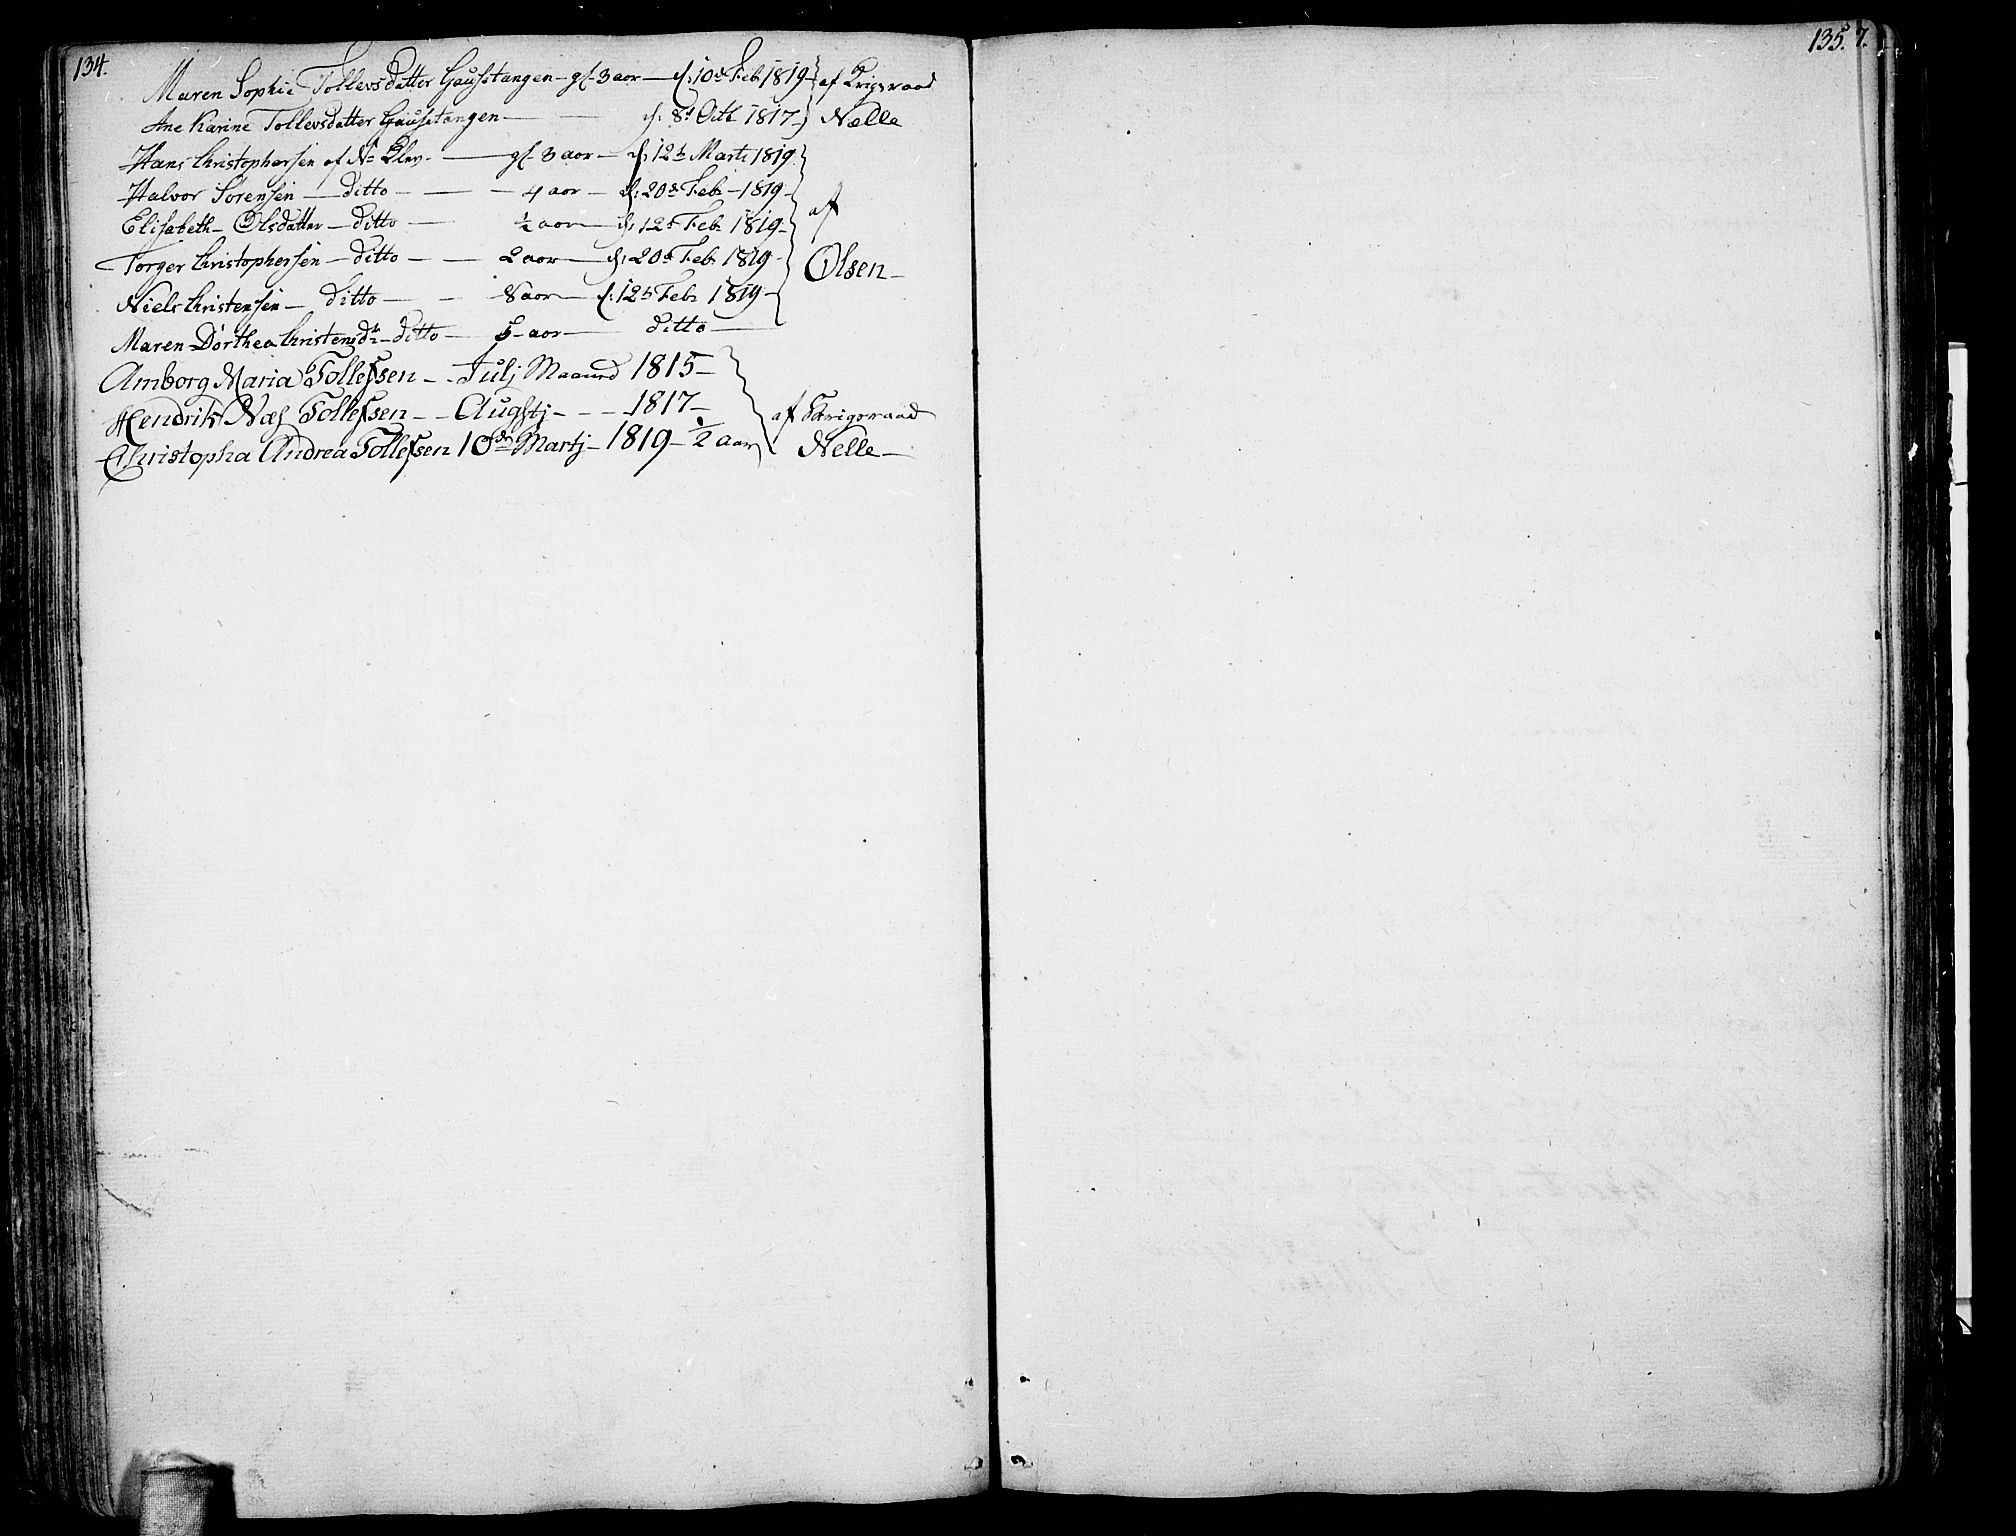 134.
Maren Sophie Tollevsdatter Gaustangen - gl. 3 aar - d: 10de Feb 1819 - af Krigsraad
Ane Karine Tollevsdatter Gaustangen - d: 8d Octb 1817 - Nælle
Hans Christophersen af Klev - gl. 3 aar - d: 12te Marti 1819
Halvor Sørensen - ditto - 4 aar - d: 20de Feb - 1819 -
Elisabeth Olsdatter - ditto - ½ aar - d: 12t Feb 1819 - af
Torger Christophersen - ditto - 2 aar - d: 20d Feb 1819 - Olsen -
Niels Christensen - ditto - 8 aar - d: 12te Feb 1819 -
Maren Dorthea Christensdtr - ditto - 5 - aar - ditto -
Amborg Maria Tollefsen - Julj Maaned 1815 -
Hendrik Næs Tollefsen - Augstj - 1817 - af Krigsraad
Christopha Andrea Tollefsen 10de Martj - 1819 - ½ aar Nelle -
135. 7.